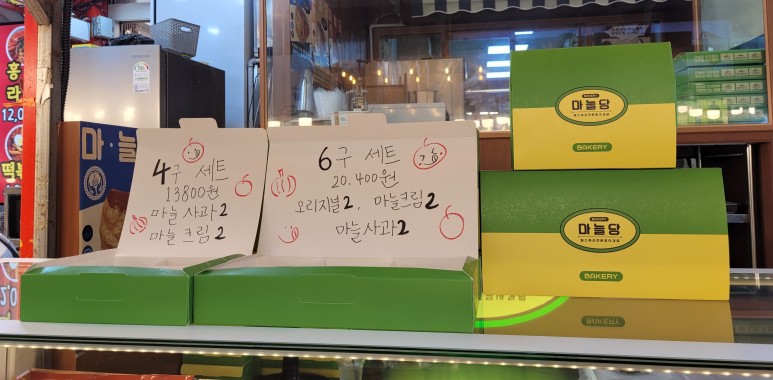 4구 세트
13800원
마늘 사과2
마늘 크림2
6구 세트
20.400원
오리지널2, 마늘크림2
마늘사과2
BAKERY
마늘당
BAKERY
BAKERY
마늘당
BAKERY
BAKERY
마·늘
홍
라
12,0
떡볶
2,0